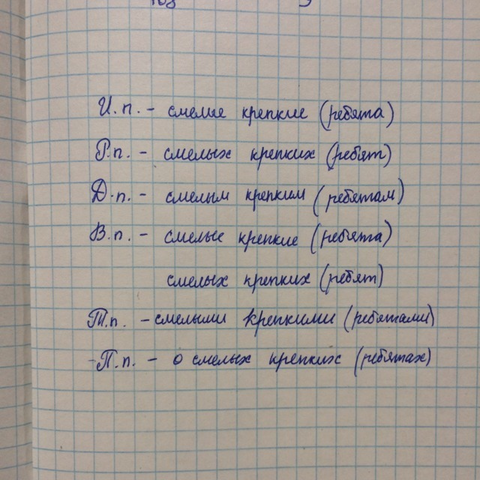 И.п. - смелые крепкие (ребята)
Р.п. - смелых крепких (ребят)
Д.п. - смелым крепким (ребятам)
В.п. - смелые крепкие (ребята)
смелых крепких (ребят)
Т.п. - смелыми крепкими (ребятами)
П.п. - о смелых крепких (ребятах)